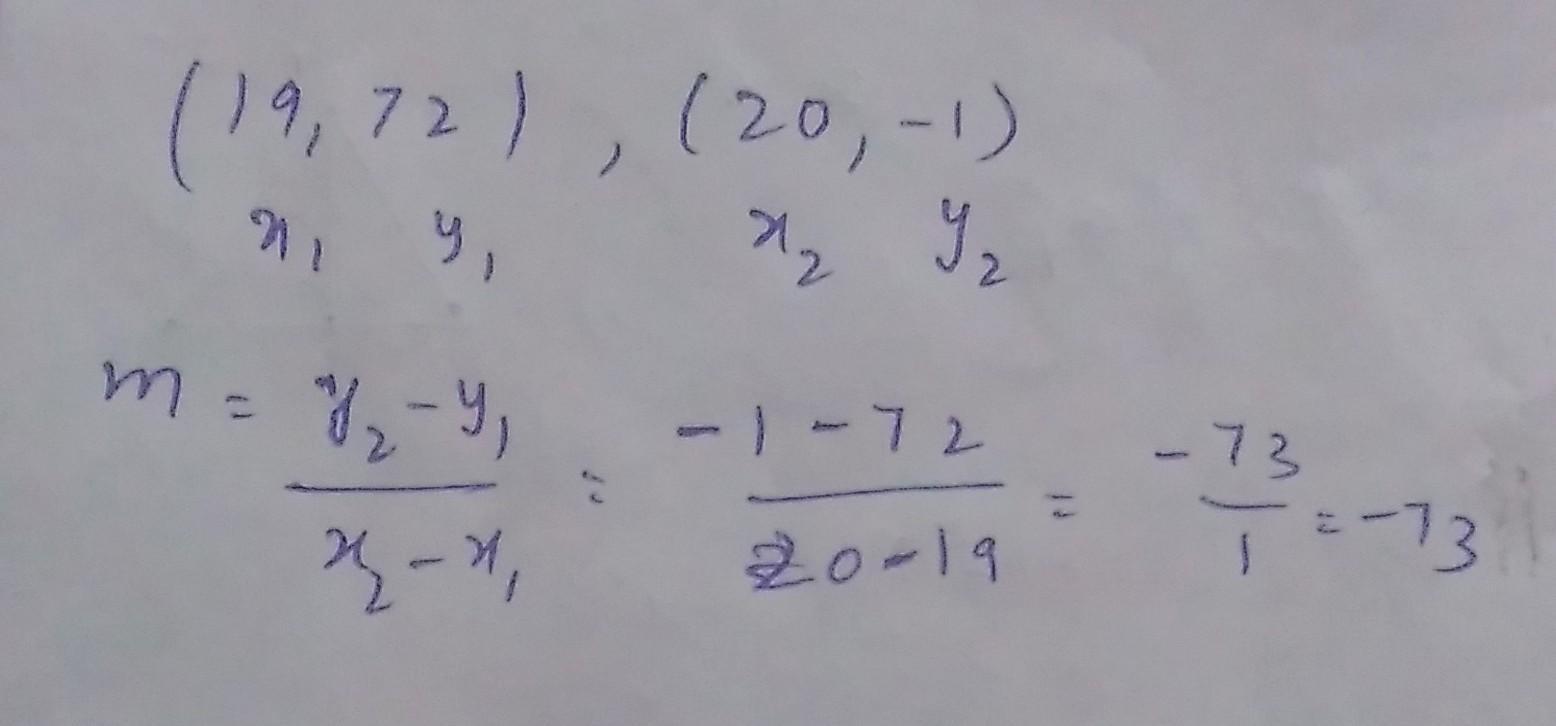 (19, 72) , (20, -1)
x₁ y₁ x₂ y₂
m = y₂-y₁ / x₂-x₁ = -1-72 / 20-19 = -73 / 1 = -73